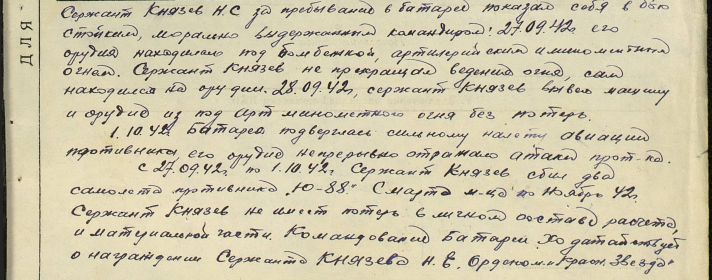 Сержант Князев Н.С за пребывание в батареи показал себя в бою
стойким, морально выдержанным командиром! 27.09.42г его
орудия находилась под бомбежкой, артилерийским и минометным
огнем. Сержант Князев не прекращал ведения огня, сам
находился на орудии. 28.09.42г, сержант Князев вывел машину
и орудие из под арт минометного огня без потерь.
1.10.42г Батарея подверглась сильному налету авиации
противника, его орудие непрерывно отражало атаки прот-ка.
с 27.09.42г по 1.10.42г Сержант Князев сбил два
самолета противника "Ю-88" С марта м-ца по Ноябрь 42г
Сержант Князев не имеет потерь в личном составе расчета,
и материальной части. Командование Батареи ходатайствует
о награждении Сержанта КНЯЗЕВА Н. Орденом "Красн. Звезда"
ДЛЯ